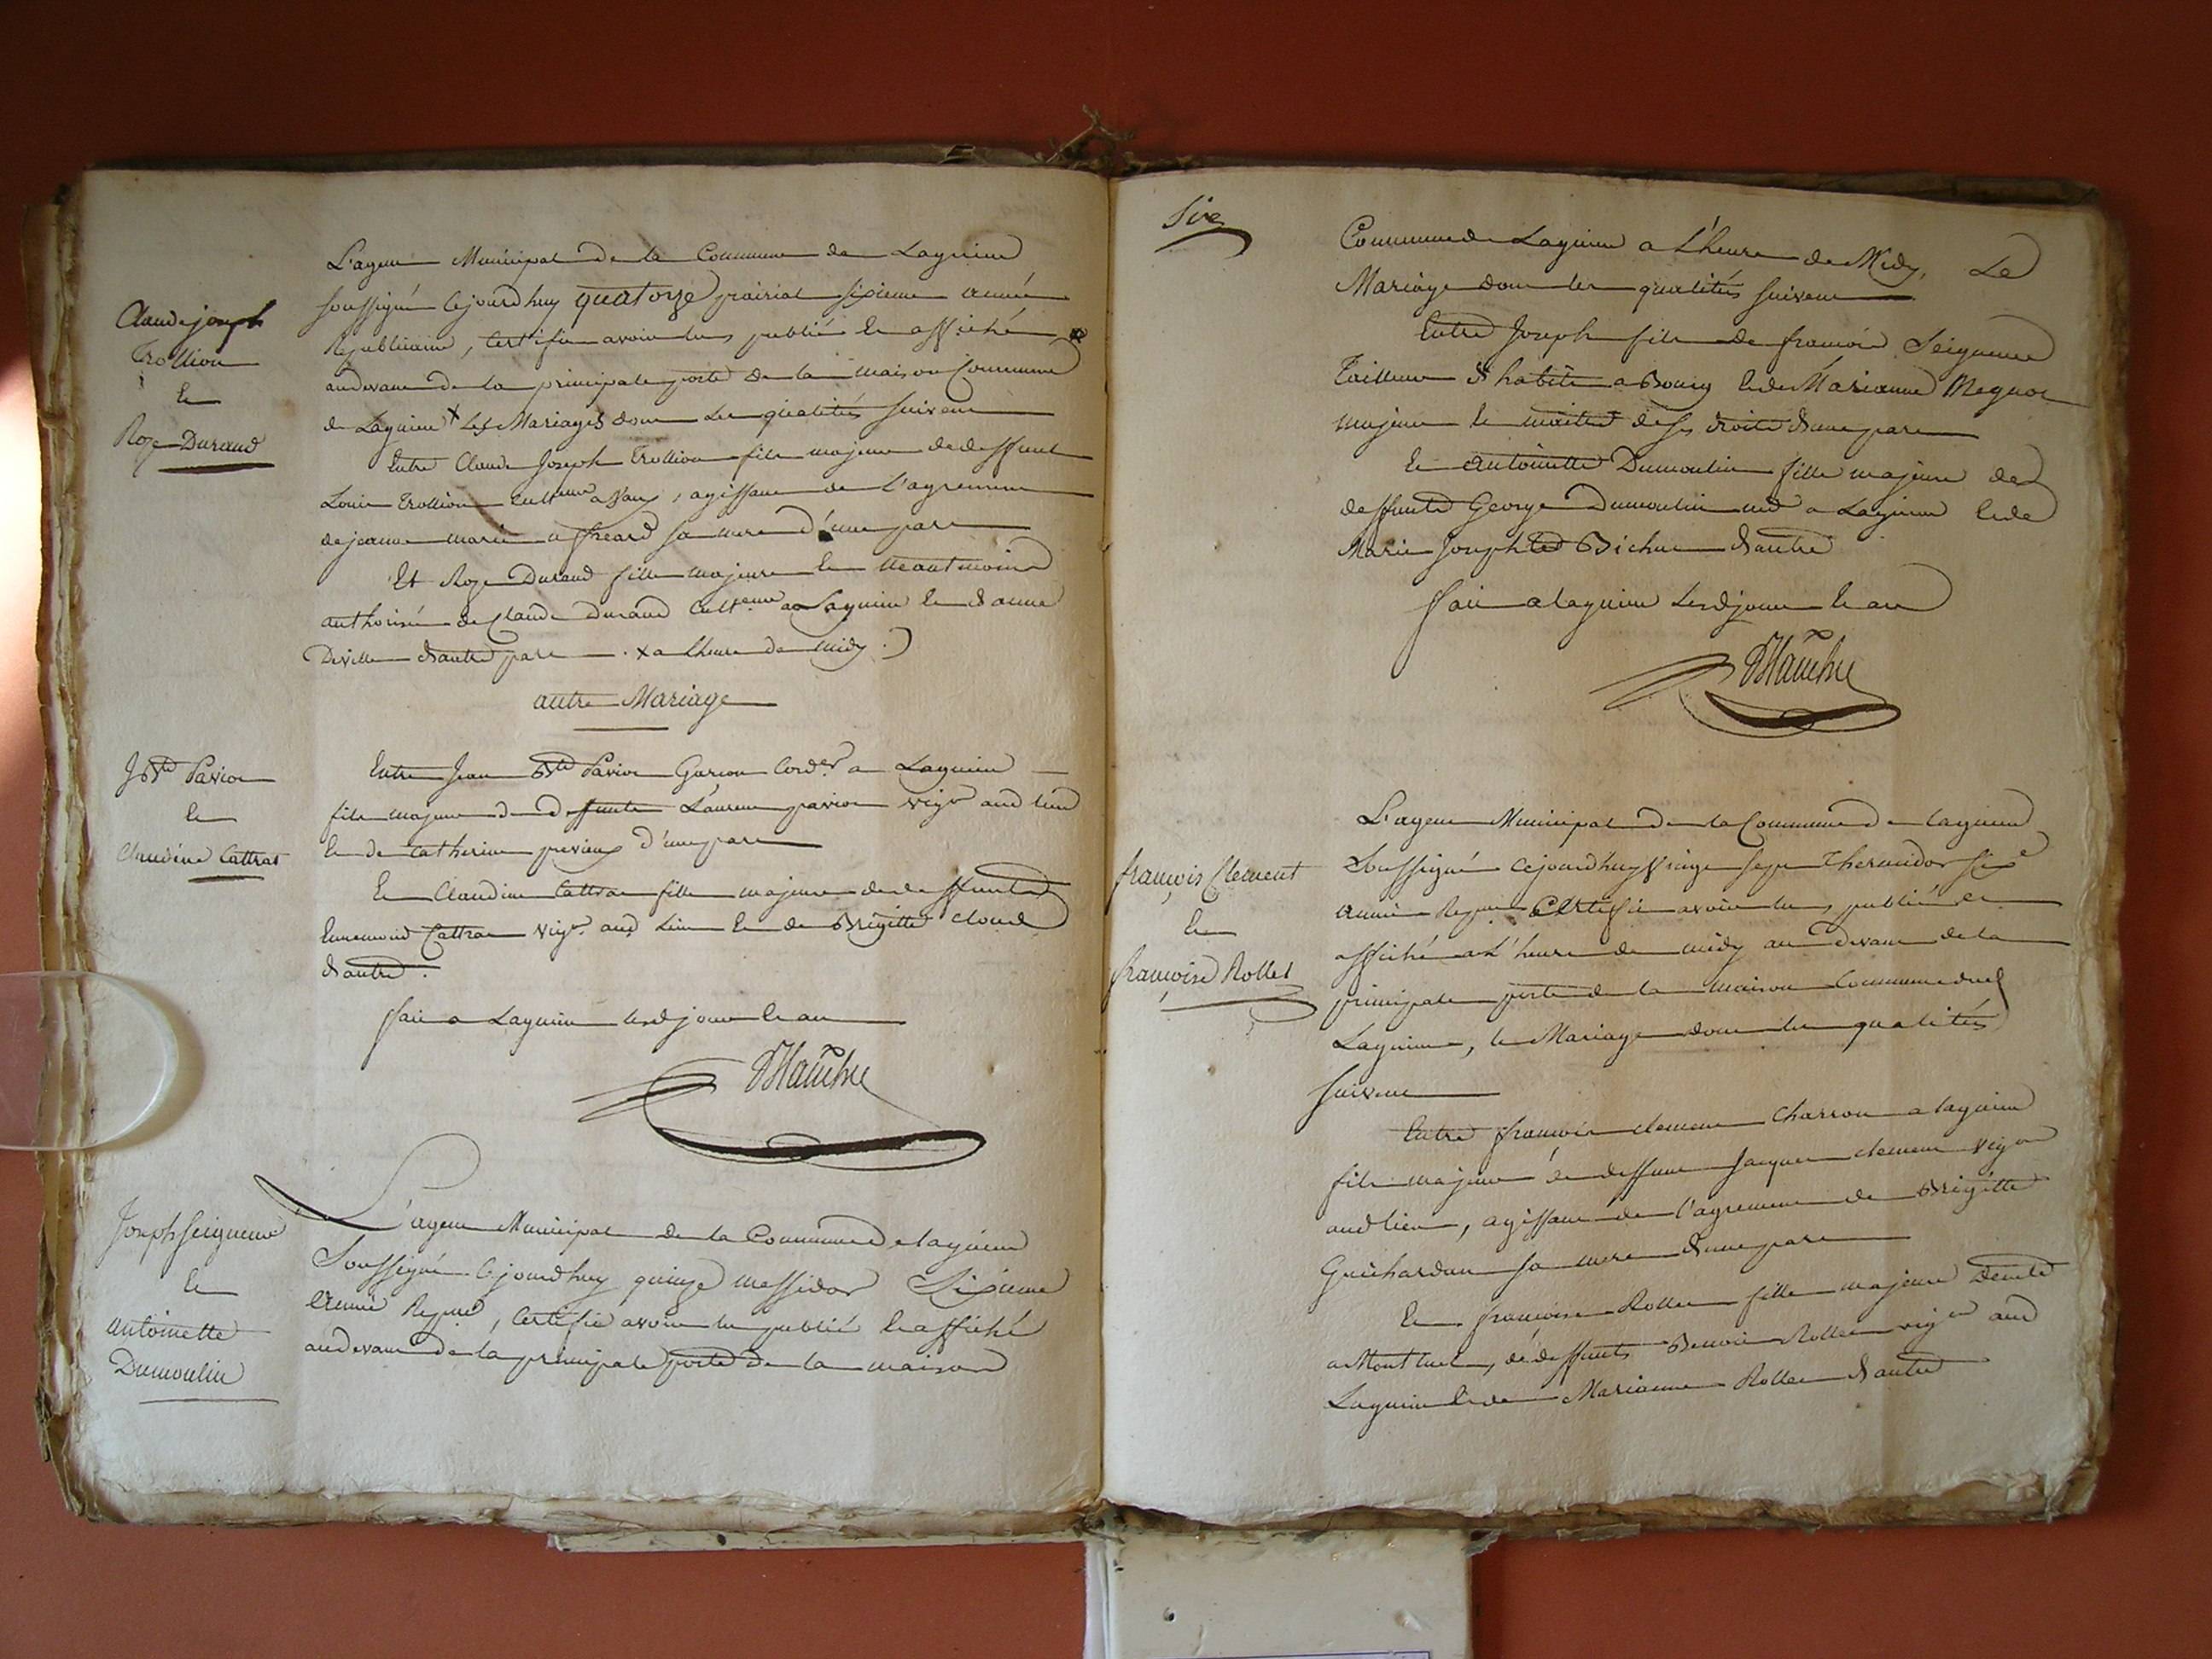 Claude joseph
Trollion
et
Roze Durand
L'agent Municipal de la Commune de Lagnieu
soussigné Cejourdhuy quatorze prairial sixieme année
Republicaine, Certifie avoir lu, publié et affiché
audevant de la principale porte de la maison Commune
de Lagnieu x Les Mariages dont les qualités suivent
Entre Claude Joseph Trollion fils majeur de deffunt
Louis Trollion cult.eur a Vaux, agissant de L'agrement
de jeanne marie sa mere d'une part
Et Roze Durand fille majeure et neantmoins
authorisée de Claude Durand Cult.eur a Lagnieu et d'anne
Deville d'autre part x a Lheure de midy.
autre Mariage
J B.te Pavion
et
Claudine Cattrat
Entre Jean B.te Pavion Garçon Cord.er a Lagnieu
fils majeur de deffunts Laurent pavion vig.on aud lieu
et de Catherine d'une part
Et Claudine Cattrat fille majeure de deffunts
Ennemond Cattrat vig.on aud Lieu et de Brigitte
d'autre.
fait a Lagnieu lesd jour et an
Joseph Seigneur
et
antoinette
Dumoulin
L'agent Municipal de la Commune de lagnieu
Soussigné Cejourdhuy quinze messidor Sixieme
année Repu.e, Certifie avoir lu publié et affiché
audevant de la principale porte de la maison
Six
Commune de Lagnieu a L'heure de Midy, Le
Mariage dont les qualités suivent
Entre Joseph fils de françois Seigneur
Tailleur d'habits a Bourg et de Marianne
majeur et maitre de ses droits d'une part
Et antoinette Dumoulin fille majeure de
deffunts George Dumoulin a Lagnieu et de
Marie Josephte d'autre
fait a lagnieu Lesd jour et an
françois Clement
et
françoise Rollet
L'agent Municipal de la Commune de lagnieu
Soussigné Cejourd'huy Vingt sept Thermidor six.e
année Repu. Certifie avoir lu, publié et
affiché a L'heure de midy au devant de la
principale porte de la maison Commune dud
Lagnieu, le Mariage dont les qualités
suivent
Entre françois clement Charron a lagnieu
fils majeur de deffunt Jacques clement vig.on
aud lieu, agissant de l'agrement de Brigitte
sa mere d'une part
Et françoise Rollet fille majeure
a Montluel, de deffunts Benoit Rollet vig.on aud
Lagnieu et de Marianne Rollet d'autre